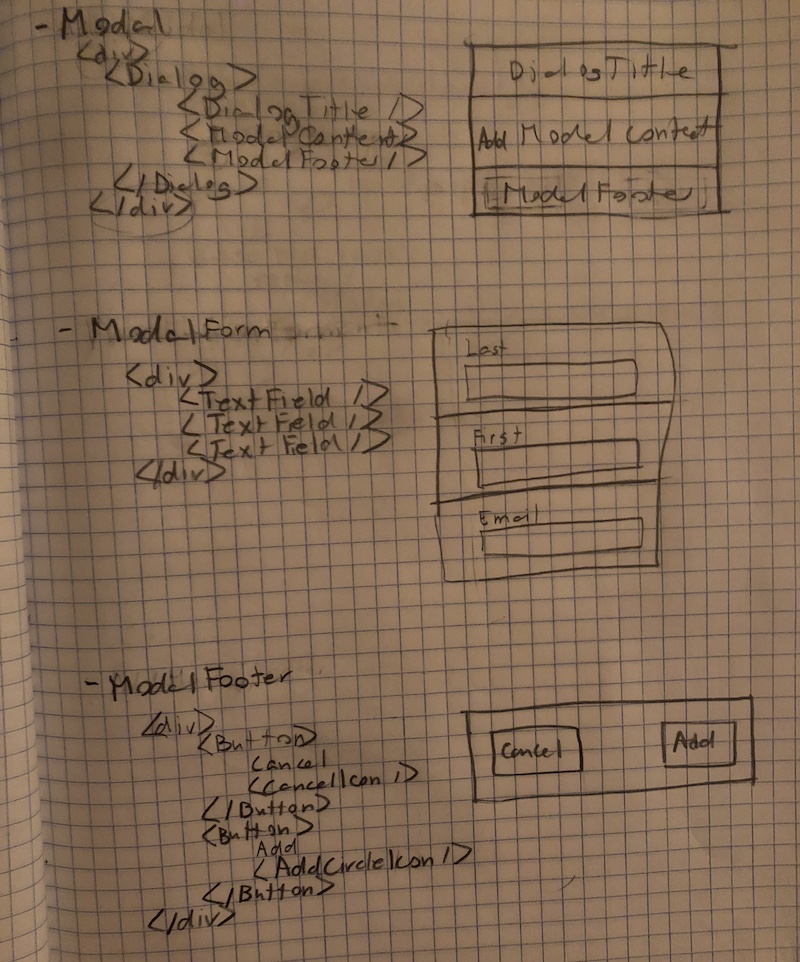 - Modal
<div>
<Dialog>
<DialogTitle />
<ModalContent>
<ModalFooter/>
</Dialog>
</div>
DialogTitle
Add Modal Content
ModalFooter
- ModalForm
<div>
<TextField />
<TextField />
<TextField />
</div>
Last
First
Email
- ModalFooter
<div>
<Button>
Cancel
<CancelIcon />
</Button>
<Button>
Add
<AddCircleIcon />
</Button>
</div>
Cancel
Add